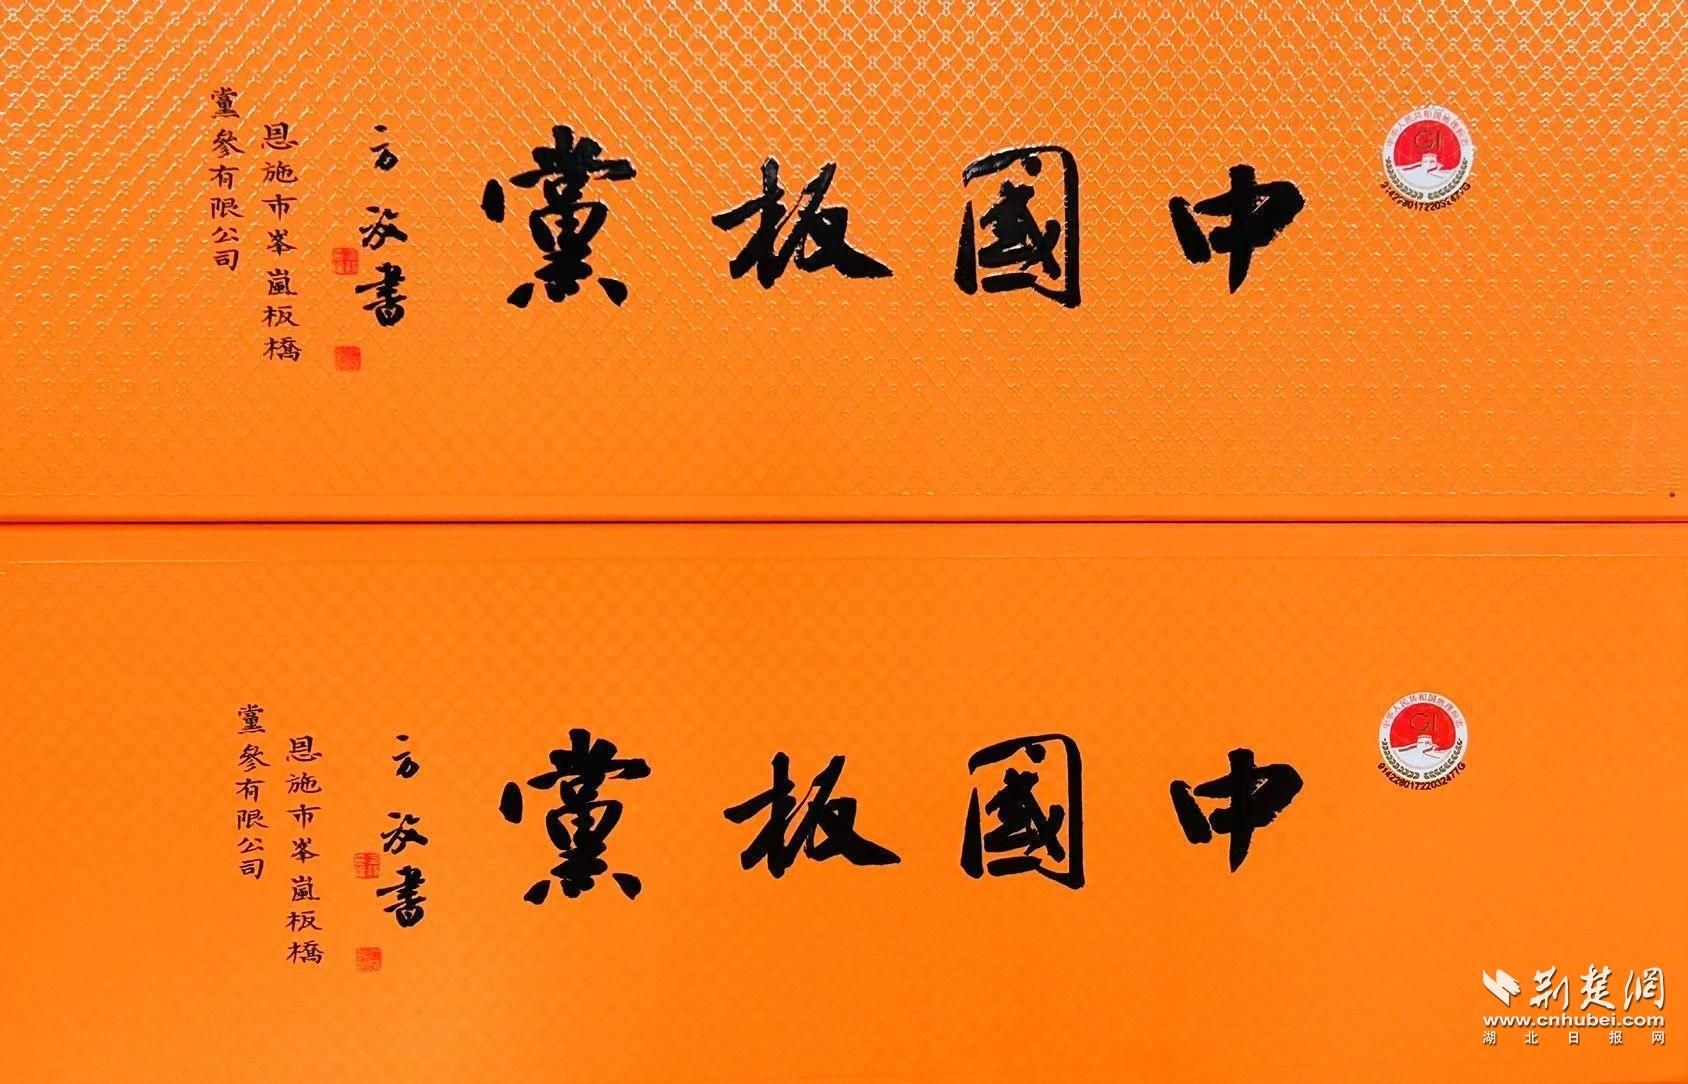 中華人民共和国地理标志
GI
91422801722032477G
中國板黨
方放書
恩施市峯嵐板橋
黨參有限公司
中华人民共和国地理标志
GI
91422801722032477G
中國板黨
方放書
恩施市峯嵐板橋
黨參有限公司
荆楚網
www.cnhubei.com
湖北日报网